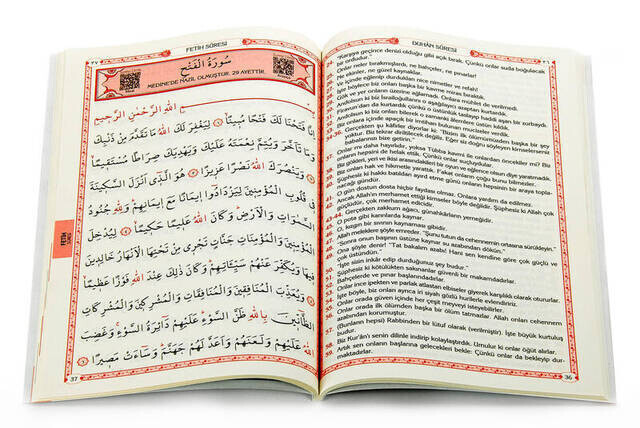 ٣٧ FETİH SÛRESİ
سُورَةُ الْفَتْحِ
MEDİNE'DE NAZİL OLMUŞTUR. 29 AYETTİR.
بِسْمِ اللهِ الرَّحْمٰنِ الرَّحِيمِ
اِنَّا فَتَحْنَا لَكَ فَتْحًا مُبِينًا لِيَغْفِرَ لَكَ اللهُ مَا تَقَدَّمَ مِنْ ذَنْبِكَ
وَمَا تَاَخَّرَ وَيُتِمَّ نِعْمَتَهُ عَلَيْكَ وَيَهْدِيَكَ صِرَاطًا مُسْتَقِيمًا
وَيَنْصُرَكَ اللهُ نَصْرًا عَزِيزًا هُوَ الَّذِي اَنْزَلَ السَّكِينَةَ
فِي قُلُوبِ الْمُؤْمِنِينَ لِيَزْدَادُوا اِيمَانًا مَعَ اِيمَانِهِمْ وَلِلّٰهِ جُنُودُ
السَّمٰوَاتِ وَالْاَرْضِ وَكَانَ اللهُ عَلِيمًا حَكِيمًا لِيُدْخِلَ
الْمُؤْمِنِينَ وَالْمُؤْمِنَاتِ جَنَّاتٍ تَجْرِي مِنْ تَحْتِهَا الْاَنْهَارُ خَالِدِينَ
فِيهَا وَيُكَفِّرَ عَنْهُمْ سَيِّئَاتِهِمْ وَكَانَ ذٰلِكَ عِنْدَ اللهِ فَوْزًا عَظِيمًا
وَيُعَذِّبَ الْمُنَافِقِينَ وَالْمُنَافِقَاتِ وَالْمُشْرِكِينَ وَالْمُشْرِكَاتِ
الظَّانِّينَ بِاللهِ ظَنَّ السَّوْءِ عَلَيْهِمْ دَائِرَةُ السَّوْءِ وَغَضِبَ
اللهُ عَلَيْهِمْ وَلَعَنَهُمْ وَاَعَدَّ لَهُمْ جَهَنَّمَ وَسَاءَتْ مَصِيرًا
FETİH
37
DUHÂN SÛRESİ ٣٦
"Karşıya geçince denizi olduğu gibi açık bırak. Çünkü onlar suda boğulacak
bir ordudur."
Onlar neler bırakmışlardı, ne bahçeler, ne pınarlar!
Ne ekinler, ne güzel konaklar.
Ve içinde eğlenip durdukları nice nimetler ve refah!
İşte böylece biz onları başka bir kavme miras bıraktık.
Gök ve yer onların üzerine ağlamadı. Onlara mühlet de verilmedi.
Andolsun ki biz İsrailoğullarını o aşağılayıcı azaptan kurtardık.
Firavun'dan da kurtardık çünkü o üstünlük taslayıp haddi aşan bir zorbaydı.
Andolsun ki biz onları bilerek o zamanki âlemlere üstün kıldık.
Biz onlara içinde apaçık bir imtihan bulunan mucizeler verdik.
34-36. Gerçekten şu kâfirler diyorlar ki: "Bizim ilk ölümümüzden başka bir şey
yoktur. Biz tekrar diriltilecek değiliz. Eğer siz doğru söyleyen kimselerseniz
babalarımızı bize getirin."
37. Onlar mı daha hayırlıdır, yoksa Tübba kavmi ile onlardan öncekiler mi? Biz
onların hepsini de helak ettik. Çünkü onlar suçluydular.
38. Biz gökleri, yeri ve ikisi arasındakileri bir oyun ve eğlence olsun diye yaratmadık.
39. Biz onları hak ve hikmetle yarattık. Fakat onların çoğu bunu bilmezler.
40. Şüphesiz ki hakkı batıldan ayırd etme günü onların hepsinin bir araya topla-
nacağı gündür.
41. O gün dostun dosta hiçbir faydası olmaz. Onlara yardım da edilmez.
42. Ancak Allah'ın merhamet ettiği kimseler böyle değildir. Şüphesiz ki Allah çok
güçlüdür, çok merhamet edicidir.
43-44. Gerçekten zakkum ağacı, günahkârların yemeğidir.
45. O pota gibi karınlarda kaynar.
46. O, kızgın bir sıvının kaynaması gibidir.
47. Allah meleklere şöyle emreder. "Şunu tutun da cehennemin ortasına sürükleyin."
48. "Sonra onun başının üstüne kaynar su azabından dökün."
49. Ona şöyle denir! "Tat bakalım azabı! Hani sen kendine göre çok güçlü ve
çok üstündün."
50. "İşte sizin inkâr edip durduğunuz şey budur."
51. Şüphesiz ki kötülükten sakınanlar güvenli bir makamdadırlar.
52. Bahçelerde ve pınar başlarındadırlar.
53. Onlar ince ipekten ve parlak atlastan elbiseler giyerek karşılıklı olarak otururlar.
54. İşte böyle, biz onları ayrıca iri siyah gözlü hurilerle evlendiririz.
55. Onlar orada güven içinde her çeşit meyveyi isteyebilirler.
56. Onlar orada ilk ölümden başka bir ölüm tatmazlar. Allah onları cehennem
azabından korumuştur.
57. (Bunların hepsi) Rabbinden bir lütuf olarak (verilmiştir). İşte büyük kurtuluş
budur.
58. Biz Kur'ân'ı senin dilinle indirip kolaylaştırdık. Umulur ki onlar öğüt alırlar.
59. Artık sen onların başlarına gelecekleri bekle: Çünkü onlar da bekleyip dur-
maktadırlar.
36